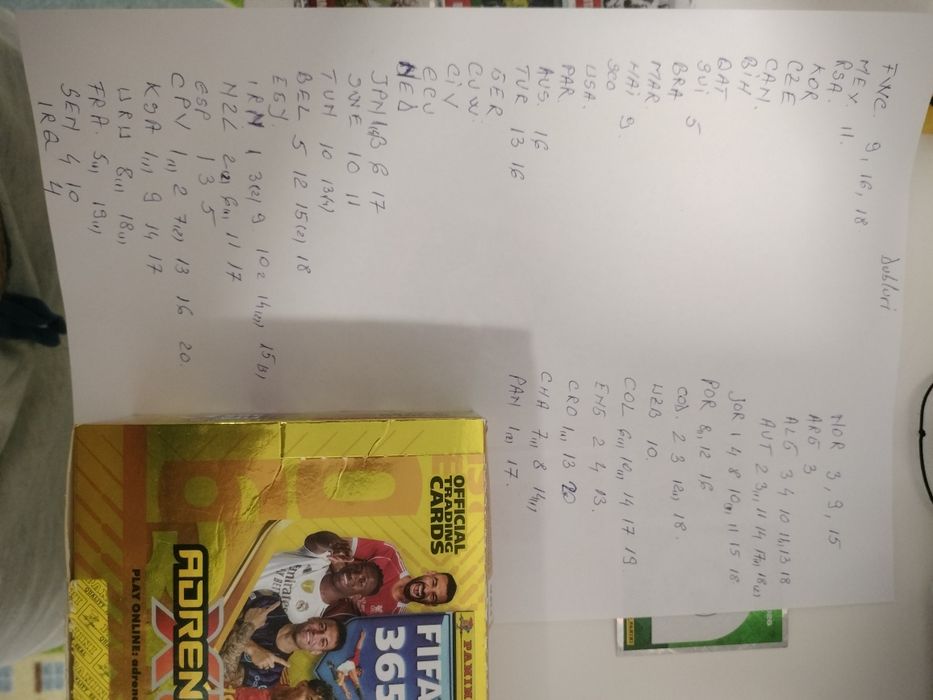 Dubluri
FWC 9, 16, 18
MEX 11.
RSA.
KOR
CZE
CAN.
BiH
QAT
SUi
BRA 5
MAR
HAi 9
SCO
USA.
PAR
AUS 16
TUR 13 16
GER
CUW.
CiV
ECU
NED
JPN 6 17
SWE 10 11
TUN 10 13(2)
BEL 5 12 15(2) 18
EGY.
IRN 1 3(2) 9 10 2 14(2) 15(3)
NZL 2(2) 6(1) 11 17
ESP 1 3 5
CPV 1(1) 2 7(2) 13 16 20.
KSA 1(1) 9 14 17
URU 8(1) 18(1)
FRA. 5(1) 19(1)
SEN 4 10
IRQ 4
NOR 3, 9, 15
ARG 3
ALG 3 4 10 11, 13 18
AUT 2 3(1) 11 14 17(1) 18(2)
JOR 1 4 8 10(1) 11 15 18
POR 8(1) 12 16
COD 2 3 12(1) 18.
UZB 10.
COL 6(1) 12(1) 14 17 19
ENG 2 4 13.
CRO 1(1) 13 20
GHA 7(1) 8 14(1)
PAN 1(2) 17.
OFFICIAL
TRADING
CARDS
PANINI
FIFA
365
ADREN
PLAY ONLINE: adrena